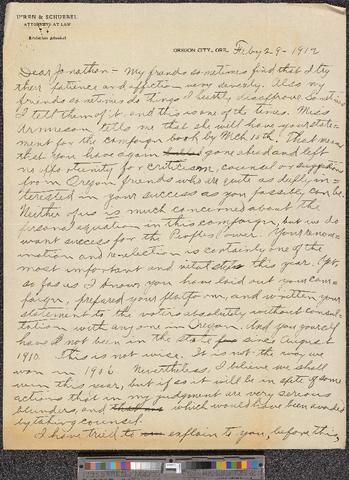 U'REN & SCHUEBEL
ATTORNEYS AT LAW
OREGON CITY, ORE. Feby 29 - 1912
Dear Jonathan - My friends sometimes find that I try
their patience and affection very severely. Also my
friends sometimes do things I heartily disapprove. Sometimes
I tell them of it, and this is one of the times. Miss
tells me that she will have your state-
ment for the campaign book by Mch 15th. That means
that you have again gone ahead and left
no opportunity for criticism, counsel or suggestions
from Oregon friends who are quite as deeply in-
terested in your success as you possibly can be.
Neither of us is much concerned about the
personal equation in this campaign, but we do
want success for the Peoples Power. Your renom-
ination and re-election is certainly one of the
most important and vital steps this year. Yet,
so far as I know, you have laid out your cam-
paign, prepared your platform, and written your
statement to the voters absolutely without consul-
tation with any one in Oregon. And you yourself
have not been in the state since August
1910. This is not wise. It is not the way we
won in 1906. Nevertheless, I believe we shall
win this year, but if so it will be in spite of some
actions that in my judgment are very serious
blunders, and which would have been avoided
by taking counsel.
I have tried to explain to you, before this,